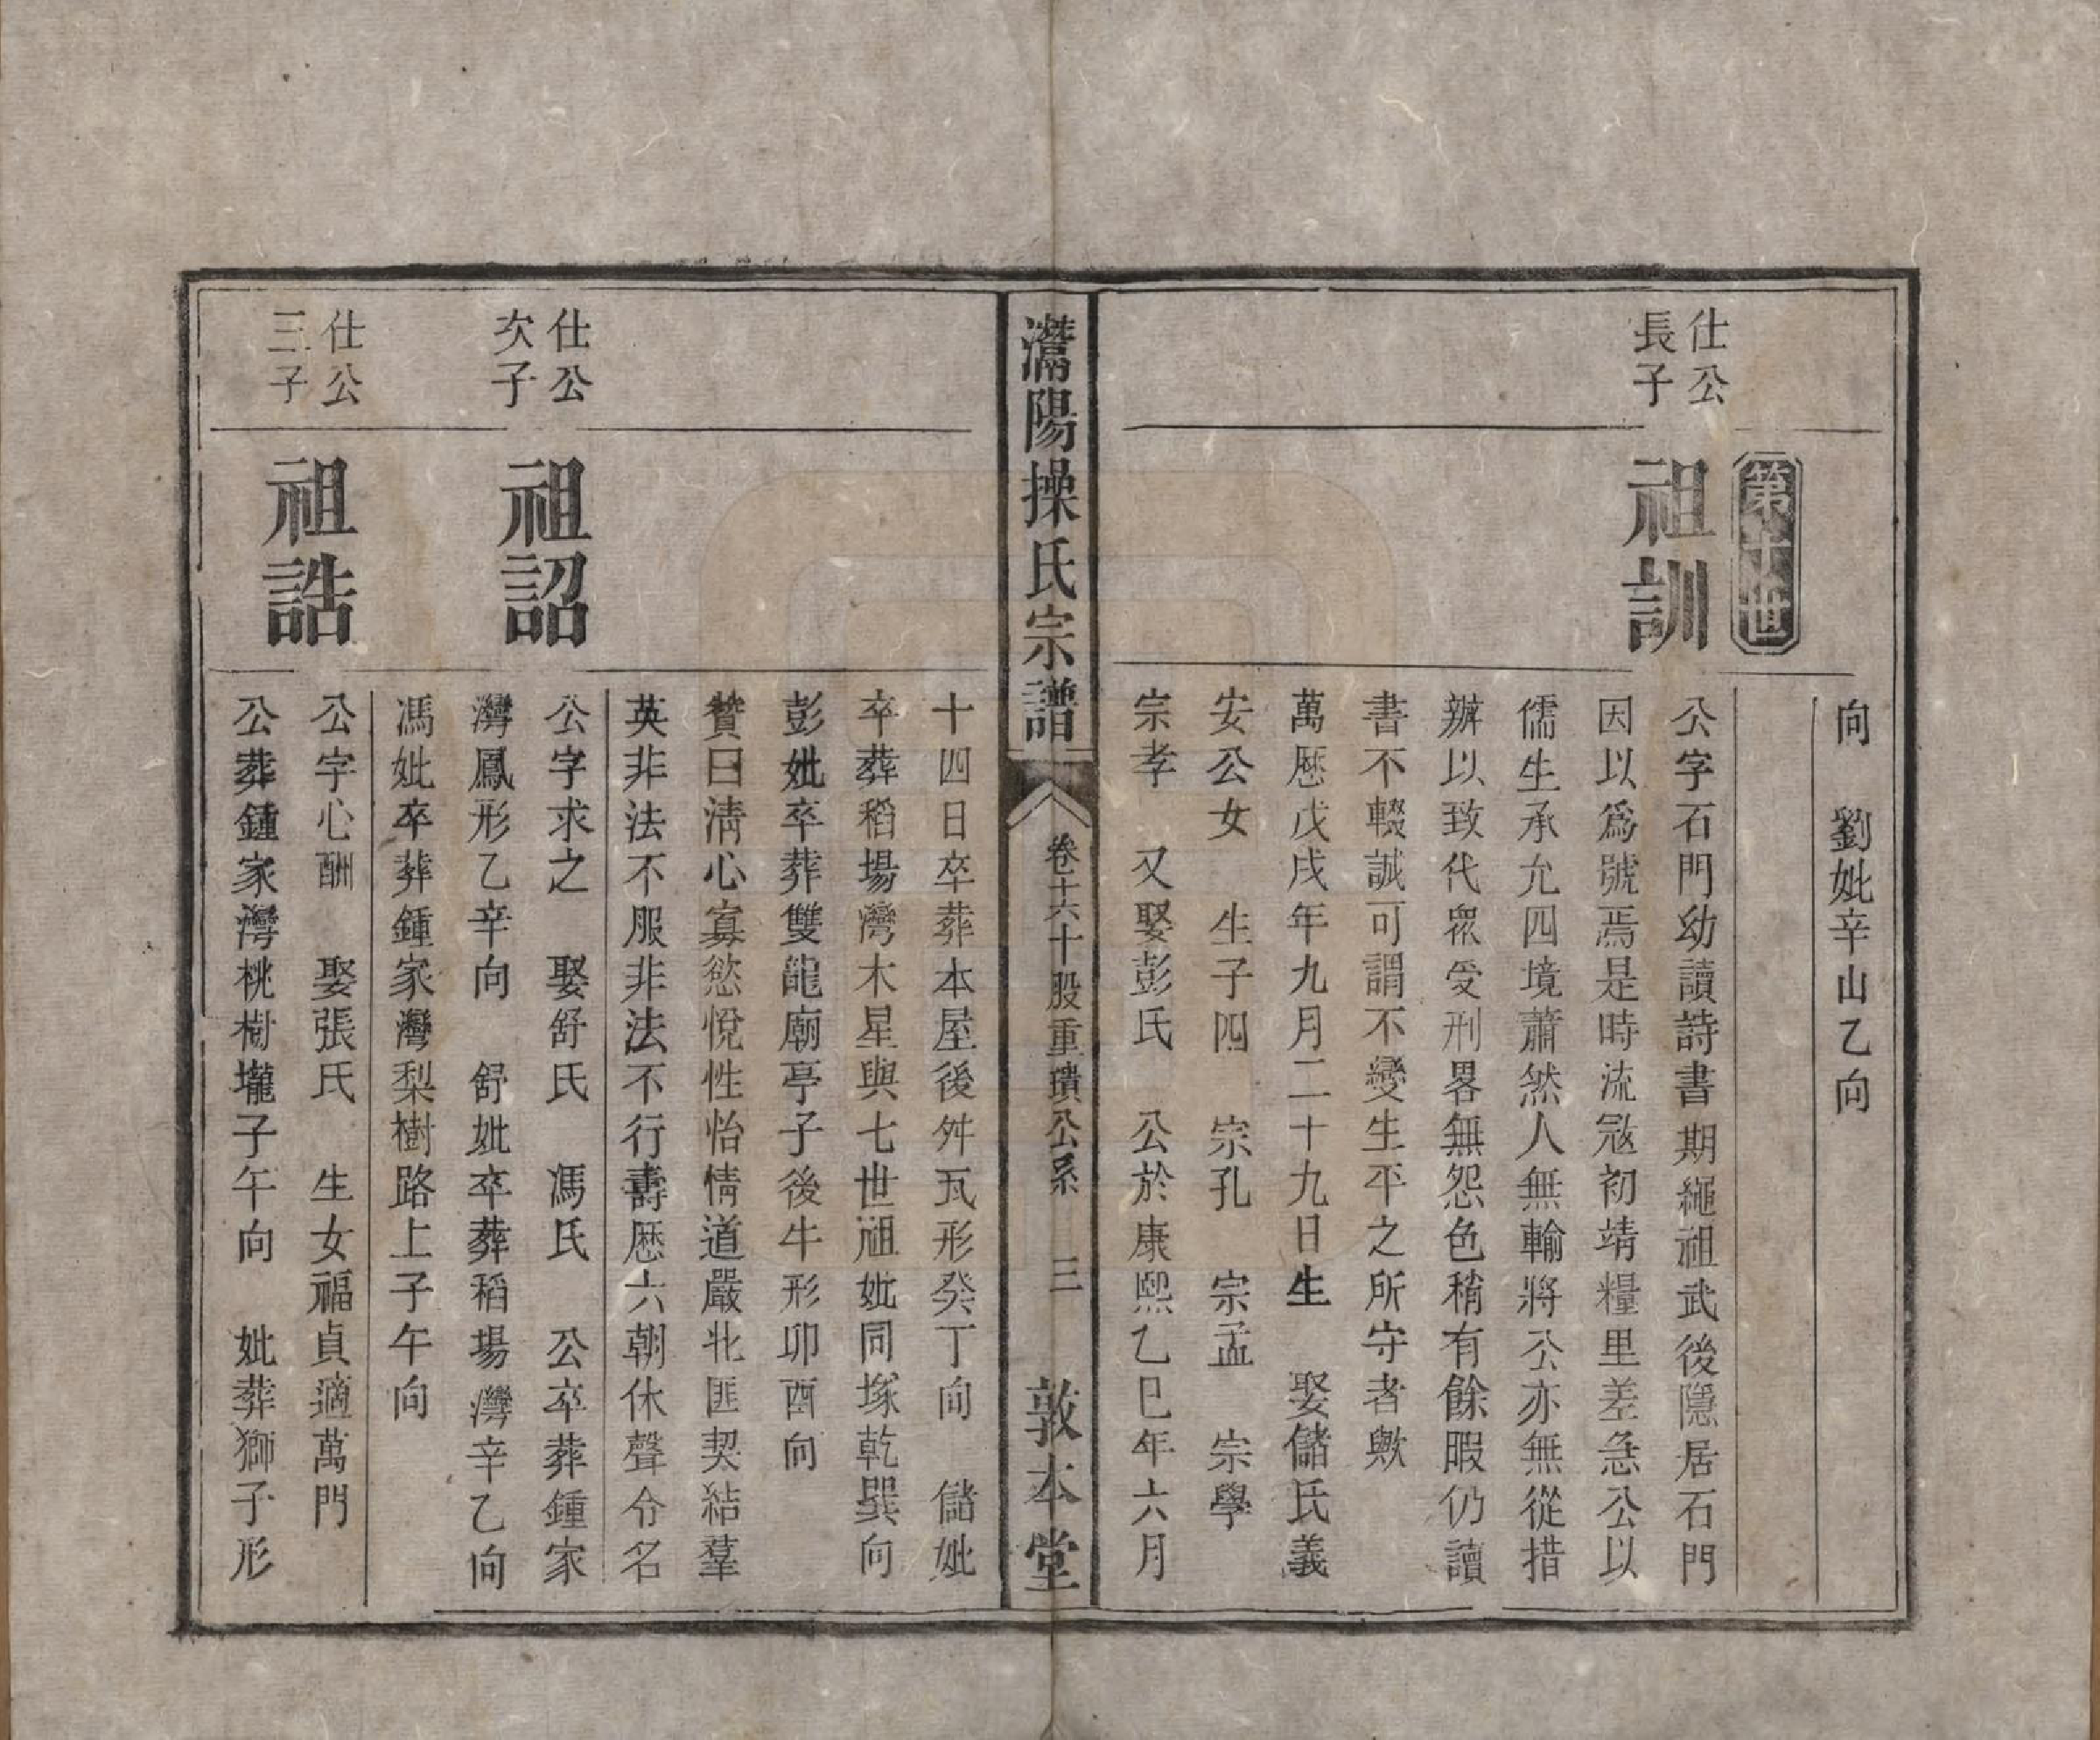 向　劉妣辛山乙向
第十世
仕公
長子
祖訓
公字石門幼讀詩書期繩祖武後隱居石門
因以爲號焉是時流冦初靖糧里差急公以
儒生承允四境蕭然人無輸將公亦無從措
辦以致代衆受刑畧無怨色稍有餘暇仍讀
書不輟誠可謂不變生平之所守者歟
萬厯戊戌年九月二十九日生　娶儲氏義
安公女　生子四　宗孔　宗孟　宗學
宗孝　又娶彭氏　公於康熙乙巳年六月
灊陽操氏宗譜
卷十六十股重璝公系　三
敦本堂
十四日卒葬本屋後舛瓦形癸丁向　儲妣
卒葬稻場灣木星與七世祖妣同塚乾巽向
彭妣卒葬雙龍廟亭子後牛形卯酉向
贊曰清心寡慾悅性怡情道嚴北匪契結羣
英非法不服非法不行壽厯六朝休聲令名
仕公
次子
祖詔
公字求之　娶舒氏　馮氏　公卒葬鍾家
灣鳳形乙辛向　舒妣卒葬稻場灣辛乙向
馮妣卒葬鍾家灣梨樹路上子午向
仕公
三子
祖誥
公字心酬　娶張氏　生女福貞適萬門
公葬鍾家灣桃樹壠子午向　妣葬獅子形